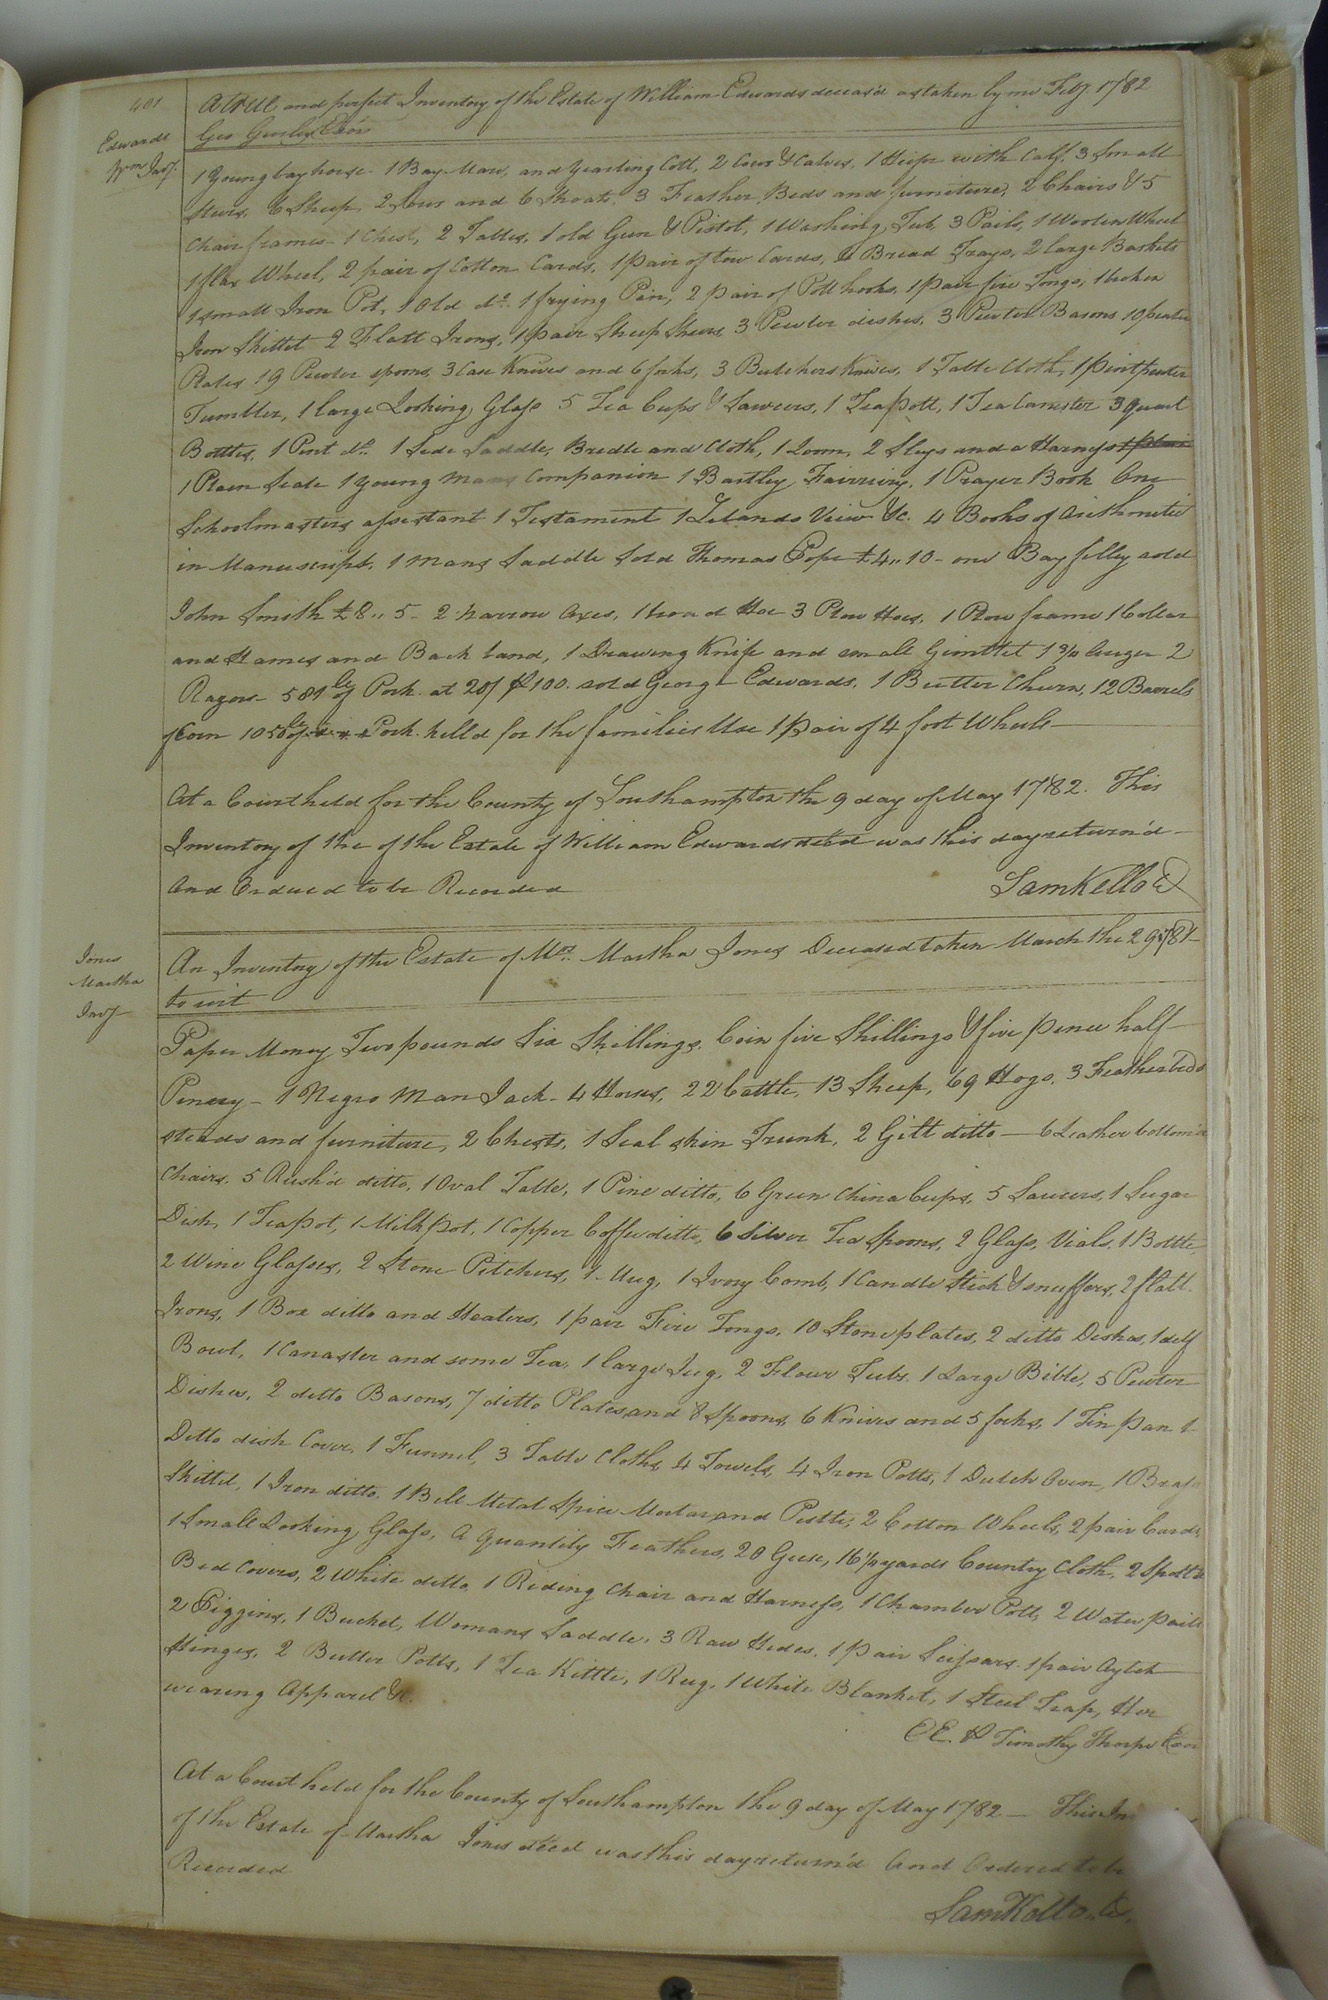 401
A true and perfect Inventory of the Estate of William Edwards deceas'd as taken by me Feby 1782
Geo Gurley Exor
Edwards
Wm Invy.
1 Young bay horse 1 Bay Mare, and yearling Colt, 2 Cows & Calves, 1 Heifer with Calf, 3 Small
Steers, 6 Sheep, 2 Sows and 6 Shoats, 3 Feather Beds and furniture, 2 Chairs & 5
Chair frames 1 Chest, 2 Tables, 1 old Gun & Pistol, 1 Washing Tub, 3 Pails, 1 Woolen Wheel
1 flax Wheel, 2 pair of Cotton Cards, 1 pair of tow Cards, Bread Trays, 2 large Baskets
1 small Iron Pot, 1 Old do. 1 frying Pan, 2 pair of Pott hooks, 1 pair fire Tongs, 1 broken
Iron Skittet 2 Flatt Irons, 1 pair Sheep Shears, 3 Pewter dishes, 3 Pewter Basons 10 pewter
Plates 19 Pewter spoons, 3 Case Knives and 6 forks, 3 Butchers Knives, 1 Table Cloth, 1 pint pewter
Tumbler, 1 large Looking Glass 5 Tea Cups & Sawcers, 1 Teapott, 1 Tea Canister 3 quart
Bottles, 1 Pint do. 1 Side Saddle, Bredle and Cloth, 1 Loom, 2 Slays and a Harness
1 Plain Scale 1 Young Mans Companion 1 Bartley Fairriery, 1 Prayer Book One
Schoolmasters assestant 1 Testament 1 Lelands View &c. 4 Books of Arithmetic
in Manuscript, 1 Mans Saddle Sold Thomas Pope £4,, 10 - one Bay filley sold
John Smith £8,, 5 - 2 narrow Axes, 1 broad Hoe 3 Plow Hoes, 1 Plow frame 1 Collar
and Hames and Back band, 1 Drawing Knife and small Gimblet 1 3/4 Auger 2
Razors - 581 lb of Pork at 20/ P 100. sold George Edwards, 1 Butter Churn, 12 Barrels
of Corn 1050 lb of Pork helld for the families Use 1 pair of 4 foot Wheels
At a Court held for the County of Southampton the 9 day of May 1782. This
Inventory of the of the Estate of William Edwards decd was this day return'd
And Ordered to be Recorded
Sam Kello Cl
Jones
Martha
Invy
An Inventory of the Estate of Mrs. Martha Jones Deceased taken March the 29 1781
to wit
Paper Money Two pounds Six Shillings. Coin five Shillings & five pence half
Penny - 1 Negro Man Jack - 4 Horses, 22 Cattle, 13 Sheep, 69 Hogs. 3 Feather beds
steads and furniture, 2 Chests, 1 Seal skin Trunk, 2 Gilt ditto - 6 Leather bottom'd
Chairs, 5 Rush'd ditto, 1 Oval Table, 1 Pine ditto, 6 Green China Cups, 5 Saucers, 1 Sugar
Dish, 1 Teapot, 1 Milk pot, 1 Copper Coffee ditto, 6 Silver Tea Spoons, 2 Glass Vials, 1 Bottle
2 Wine Glasses, 2 Stone Pitchers, 1 Mug, 1 Ivory Comb, 1 Candle Stick & snuffers, 2 flatt
Irons, 1 Box ditto and Heaters, 1 pair Fire Tongs, 10 Stone plates, 2 ditto Dishes, 1 delf
Bowl, 1 Canaster and some Tea, 1 large Jug, 2 Flour Tubs, 1 Large Bible, 5 Pewter
Dishes, 2 ditto Basons, 7 ditto Plates and 8 Spoons, 6 Knives and 5 forks, 1 Tin pan 1
Ditto dish Cover, 1 Funnel, 3 Table Cloths, 4 Towels, 4 Iron Potts, 1 Dutch Oven, 1 Brass
Skittet, 1 Iron ditto, 1 Bell Metal Spice Mortar and Pestle, 2 Cotton Wheels, 2 pair Cards,
1 Small Looking Glass, A Quantity Feathers, 20 Geese, 16 1/2 yards Country Cloth, 2 Spotted
Bed Covers, 2 White ditto, 1 Riding Chair and Harness, 1 Chamber Pott, 2 Water pails
2 Piggins, 1 Bucket, Womans Saddle, 3 Raw Hides, 1 pair Scissars. 1 pair
Hinges, 2 Butter Potts, 1 Tea Kittle, 1 Rug, 1 White Blanket, 1 Steel Trap, Her
wearing Apparel &c.
E E. P Timothy Thorpe Exor
At a Court held for the County of Southampton the 9 day of May 1782 - This
of the Estate of Martha Jones decd was this day return'd And Ordered to be
Recorded
Sam Kello. Cl.